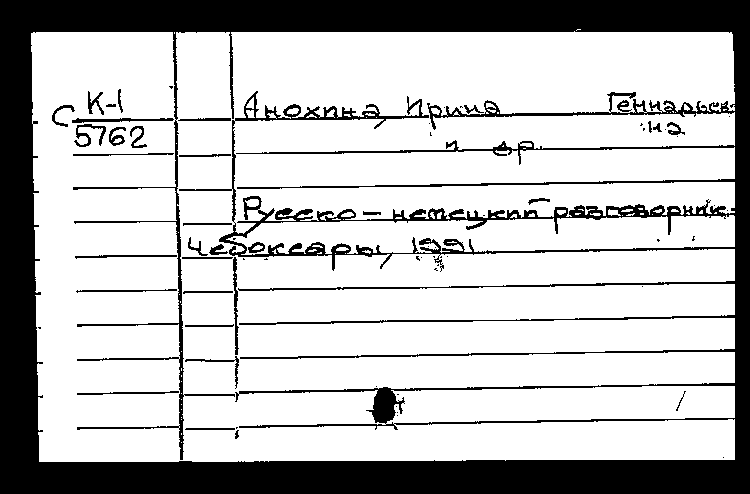 С К-1
5762
Анохина, Ирина Геннадьев-
на
и др.
Русско – немецкий разговорник.
Чебоксары, 1991